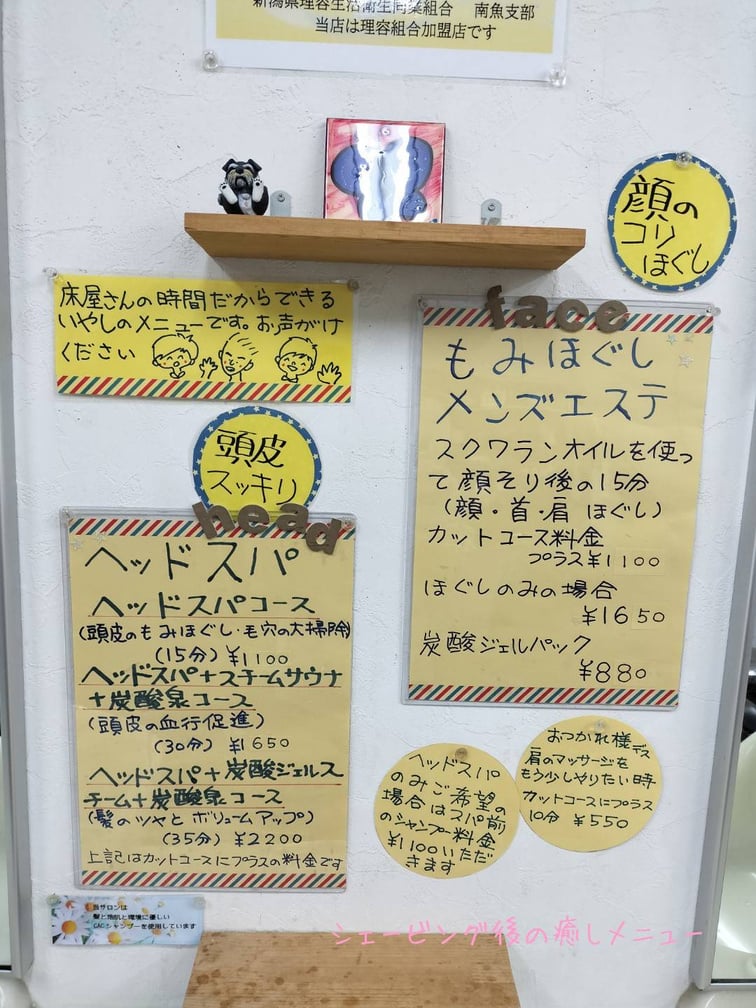 新潟県理容生活衛生同業組合 南魚支部
当店は理容組合加盟店です
顔の
コリ
ほぐし
床屋さんの時間だからできる
いやしのメニューです。お声がけ
ください
頭皮
スッキリ
head
ヘッドスパ
ヘッドスパコース
(頭皮のもみほぐし・毛穴の大掃除)
(15分) ¥1100
ヘッドスパ+スチームサウナ
+炭酸泉コース
(頭皮の血行促進)
(30分) ¥1650
ヘッドスパ+炭酸ジェルス
チーム+炭酸泉コース
(髪のツヤとボリュームアップ)
(35分) ¥2200
上記はカットコースにプラスの料金です
face
もみほぐし
メンズエステ
スクワランオイルを使っ
て顔そり後の15分
(顔・首・肩 ほぐし)
カットコース料金
プラス¥1100
ほぐしのみの場合
¥1650
炭酸ジェルパック
¥880
ヘッドスパ
のみご希望の
場合はスパ前
のシャンプー料金
¥1100いただ
きます
おつかれ様デス
肩のマッサージを
もう少しやりたい時
カットコースにプラス
10分 ¥550
当サロンは
髪と地肌と環境に優しい
CACシャンプーを使用しています
シェービング後の癒しメニュー